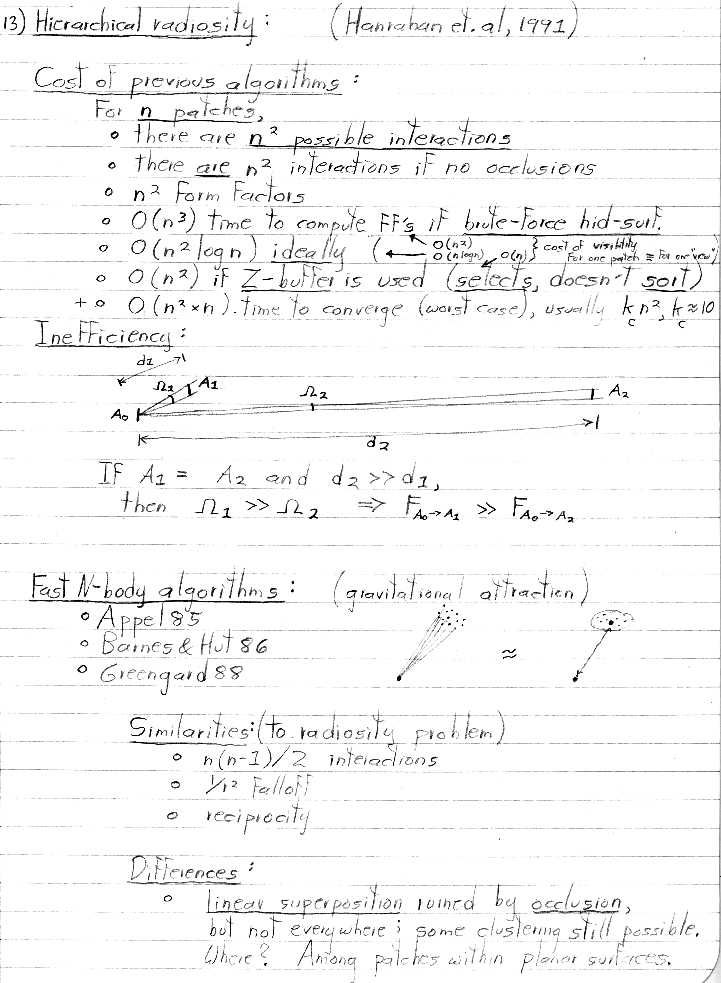 13) Hierarchical radiosity: (Hanrahan et. al, 1991)
Cost of previous algorithms:
For n patches,
o there are n² possible interactions
o there are n² interactions if no occlusions
o n² Form Factors
o O(n³) time to compute FF's if brute-force hid-surf.
o O(n² log n) ideally ( O(n²) O(n log n) O(n) } cost of visibility For one patch ≡ For one "view")
o O(n²) if Z-buffer is used (selects, doesn't sort)
+ o O(n² × n) time to converge (worst case), usually k_c n², k_c ≈ 10
Inefficiency:
d1
Ω1 A1 Ω2 A2
A0
d2
If A1 = A2 and d2 >> d1,
then Ω1 >> Ω2 ⇒ F_A0→A1 >> F_A0→A2
Fast N-body algorithms: (gravitational attraction)
o Appel 85
o Barnes & Hut 86
o Greengard 88
≈
Similarities: (to radiosity problem)
o n(n-1)/2 interactions
o 1/r² Falloff
o reciprocity
Differences:
o linear superposition ruined by occlusion,
but not everywhere; some clustering still possible.
Where? Among patches within planar surfaces.